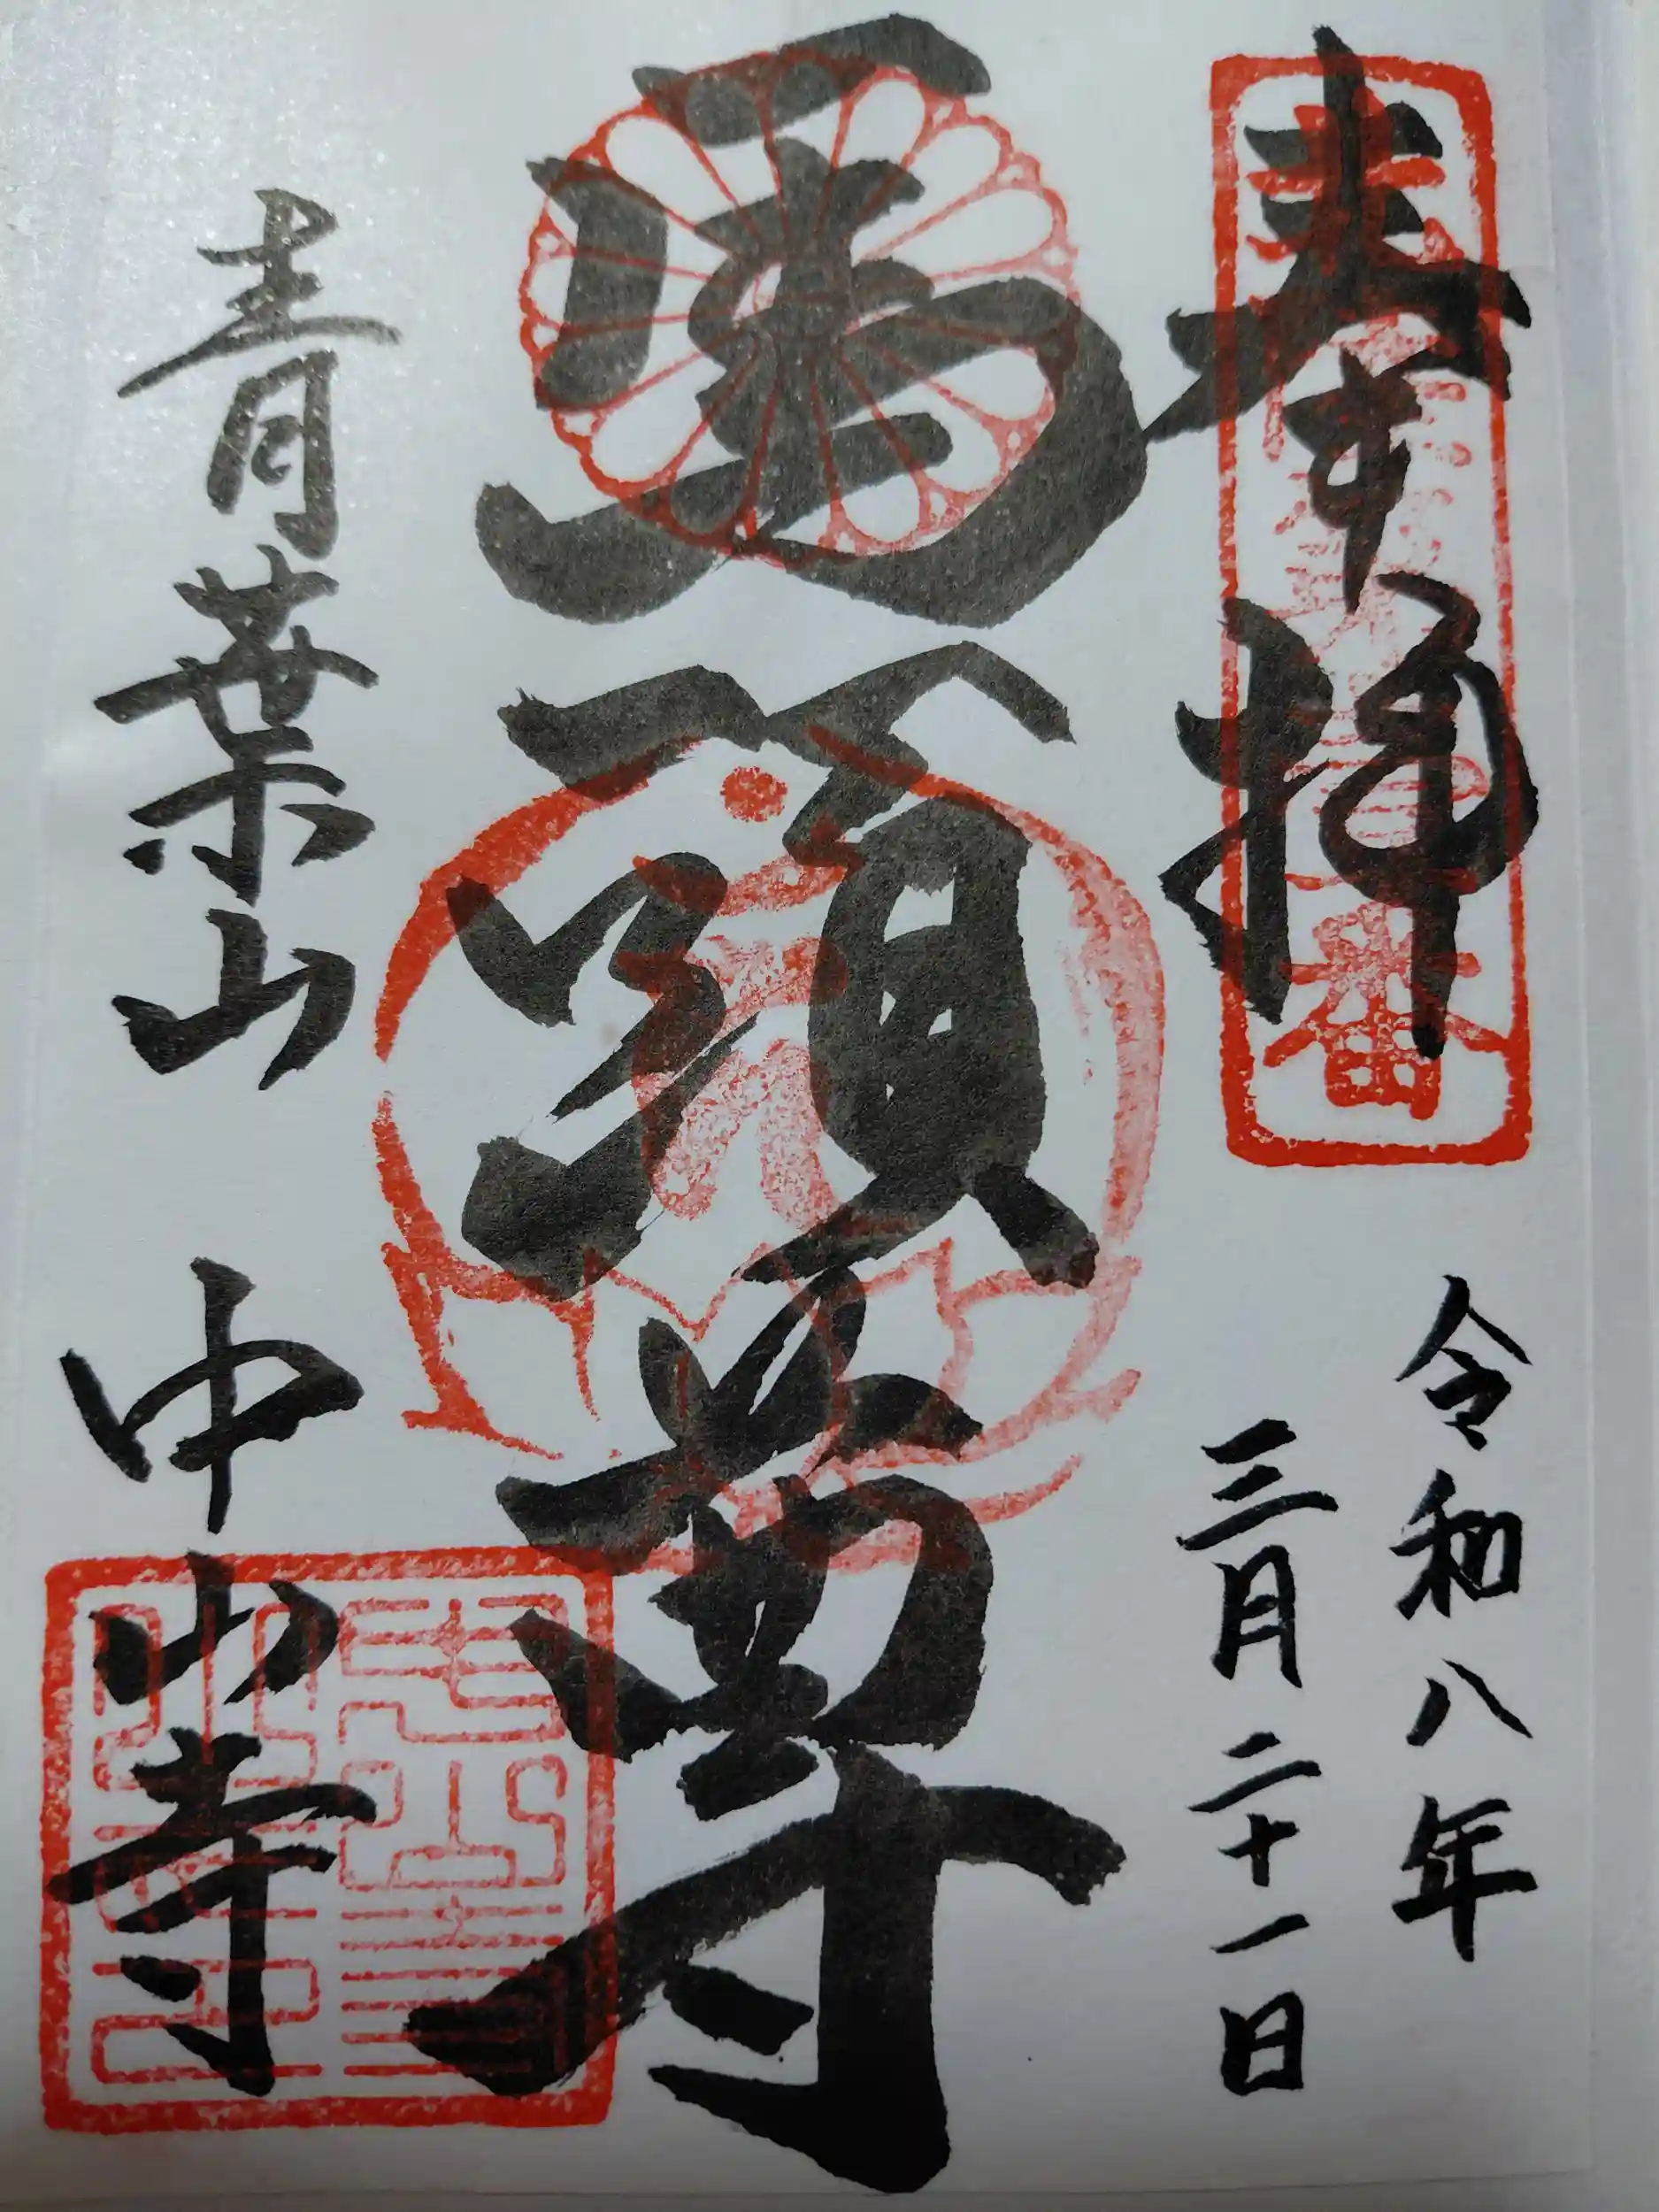 奉拝
令和八年
三月二十一日
馬頭尊
青葉山
中山寺